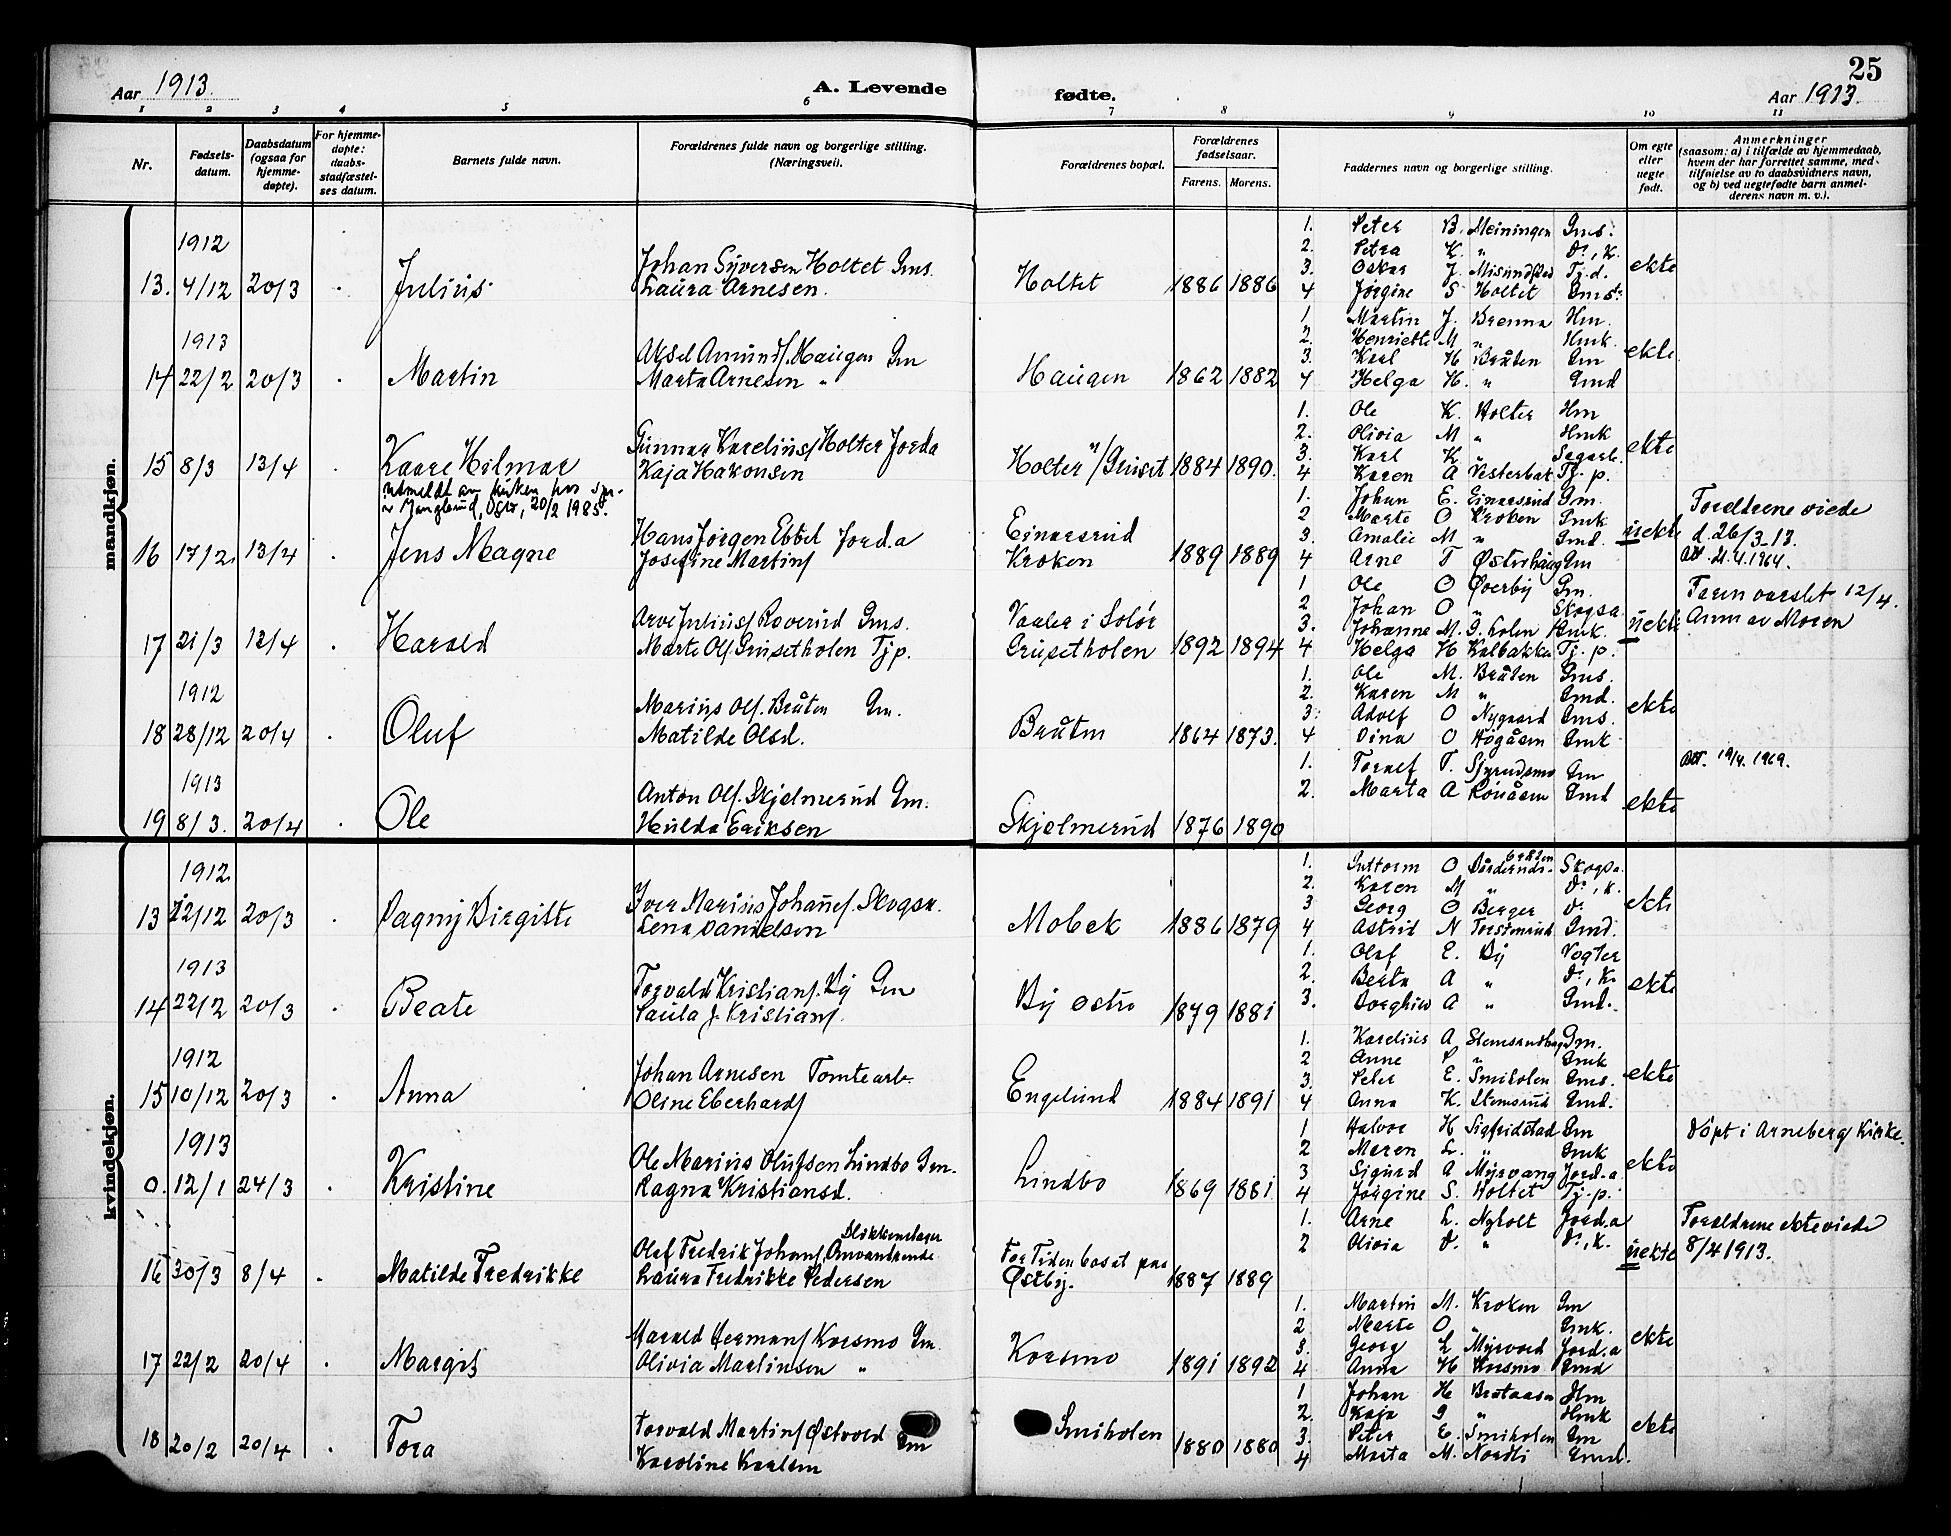 25
Aar 1913.
A. Levende
fødte.
Aar 1913.
1 2 3 4 5 6 7 8 9 10 11
Nr.
Fødsels-
datum.
Daabsdatum
(ogsaa for
hjemme-
døpte).
For hjemme-
døpte:
daabs-
stadfæstel-
ses datum.
Barnets fulde navn.
Forældrenes fulde navn og borgerlige stilling.
(Næringsvei).
Forældrenes bopæl.
Forældrenes
fødselsaar.
Farens. Morens.
Faddernes navn og borgerlige stilling.
Om egte
eller
uegte
født.
Anmerkninger
(saasom: a) i tilfælde av hjemmedaab,
hvem der har forrettet samme, med-
tilføielse av to daabsvidners navn,
og b) ved uegtefødte barn anmel-
derens navn m. v.).
mandkjøn.
1912
13. 4/12 20/3 Julius
Johan Syversen Holtet Gms.
Laura Arnesen.
Holtet 1886 1886
1. Peter B. Meiningen Gms.
2. Petra K. " Do, K.
3. Oskar J. Misundstad Tj.d.
4 Jørgine S Holtet Gmst.
ekte
1913
14 22/2 20/3 Martin
Aksel Amunds. Haugen Gm
Marta Arnesen "
Haugen 1862 1882
1 Martin J. Brenna Hm.
2. Henriette M " Hmk.
3. Karl H Bråten Gm
4 Helga H. " Gmd
ekte
15 8/3 13/4 Kaare Hilmar
utmeldt av kirken hos
Manglerud, Oslo, 20/2 1985.
Gunnar Karelius Holter Jorda
Kaja Hakonsen
Holter n/Gruset 1884 1890.
1. Ole K. Holter Hm
2. Olivia M " Hmk
3. Karl K. " Sagarb.
4 Karen A Vesterbak Tj. p.
ekte
16 17/2. 13/4 Jens Magne
Hans Jørgen Ebbel Jord.a
Josefine Martins
Einarsrud
Kroken 1889 1889
1. Johan E. Einarsrud Gm.
2 Marte O Kroken Gmk
3. Amalie M " Gmd.
4 Arne T Østvihaug Gm
uekte
Foreldrene viede
d. 26/3-13.
Att. 21.4.1964.
17 21/3 12/4 Harald
Arve Julius Roverud Gms.
Marte Ols. Grusetholen Tjp.
Vaaler i Solør
Grusetholen 1892 1894
1 Ole O Øverby Gm.
2 Johan O " Skogsa.
3. Johanne M. G.holen Gmk.
4 Helga H Kalbakken Tj. p.
uekte
Faren varslet 12/4.
Anm av Moren
1912
18 28/12 20/4 Oluf
Marius Ols. Bråten Gm.
Matilde Olsd.
Bråten 1864 1873.
1. Ole M. Bråten Gms.
2. Karen M " Gmd.
3. Adolf O Nygaard Gms.
4 Dina O Høgåsen Gmk
ekte
1913
19 8/3. 20/4 Ole
Anton Ols. Skjelmerud Gm.
Hulda Eriksen
Skjelmerud 1876 1890
1. Toralf T. Sjyrudsmo Gm
2. Marta A Røuåsen Gmd
ekte
Att. 19/4. 1969.
kvindekjøn.
1912
13 22/12 20/3 Dagny Birgitte
Iver Marius Johans. Skogsa.
Lena Danielsen
Mobek 1886 1879
1. Guttorm O Skogsa.
2. Karen M " Do, K.
3 Georg O Berger Do
4 Astrid N Torstenrud Gmd.
ekte
1913
14 22/2 20/3 Beate
Torvald Kristians. By Gm
Paula J. Kristians.
By østre 1879 1881
1. Olaf E. By Vogter
2. Berta A " Do, K.
3. Borghild A " Gmd.
ekte
1912
15 10/12 20/3 Anna
Johan Arnesen Tomtearb.
Oline Eberhards
Englund 1884 1891
1. Karelius A Stemsrudhag Gm.
2 Anne P " Gmk
3. Peter E. Smiholen Gms.
4 Anna K. Stemsrud Gmd.
ekte
1913
0. 12/1 24/3 Kristine
Ole Marius Olufsen Lindbo Gm.
Ragna Kristiansd.
Lindbo 1869 1881
1 Halvor H Sigfridstad Gm
2 Maren L. " Gmk
3 Sigurd A Myrvang Jord.a.
4 Jørgine S. Holtet Tj.p.
ekte
Døpt i Arneberg Kirke.
16 30/3 8/4 Matilde Fredrikke
Blikkenslager
Olaf Fredrik Johans. Omvandrende
Laura Fredrikke Pedersen
For Tiden bosat paa
Østby. 1887 1889
1. Arne L. Nyholt Jord.a
2 Olivia D. " Do, K.
uekte
Foreldrene ekteviede
8/4 1913.
17 22/2 20/4 Margit
Harald Hermans Korsmo Gm.
Olivia Martinsen "
Korsmo 1891 1892
1. Martin M. Kroken Gm
2 Marte O. " Gmk.
3. Georg L Myrvold Jord.a
4 Anna H Korsmo Gmd
ekte
18 20/2 20/4 Tora
Torvald Martins Østvold Gm
Karoline Karlsen
Smiholen 1880 1880
1 Johan H Brataasen Hm
2. Kaja G " Hmk
3. Peter E. Smiholen Gm
4 Marta M. Nordli Gmd.
ekte